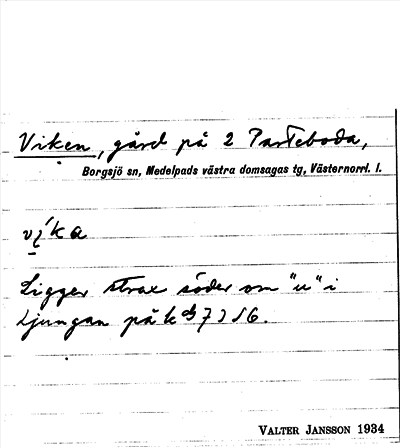 Viken, gård på 2 Parteboda,
Borgsjö sn, Medelpads västra domsagas tg, Västernorrl. l.
ví̱ka
Ligger strax söder om "u" i
Ljungan på k
VALTER JANSSON 1934